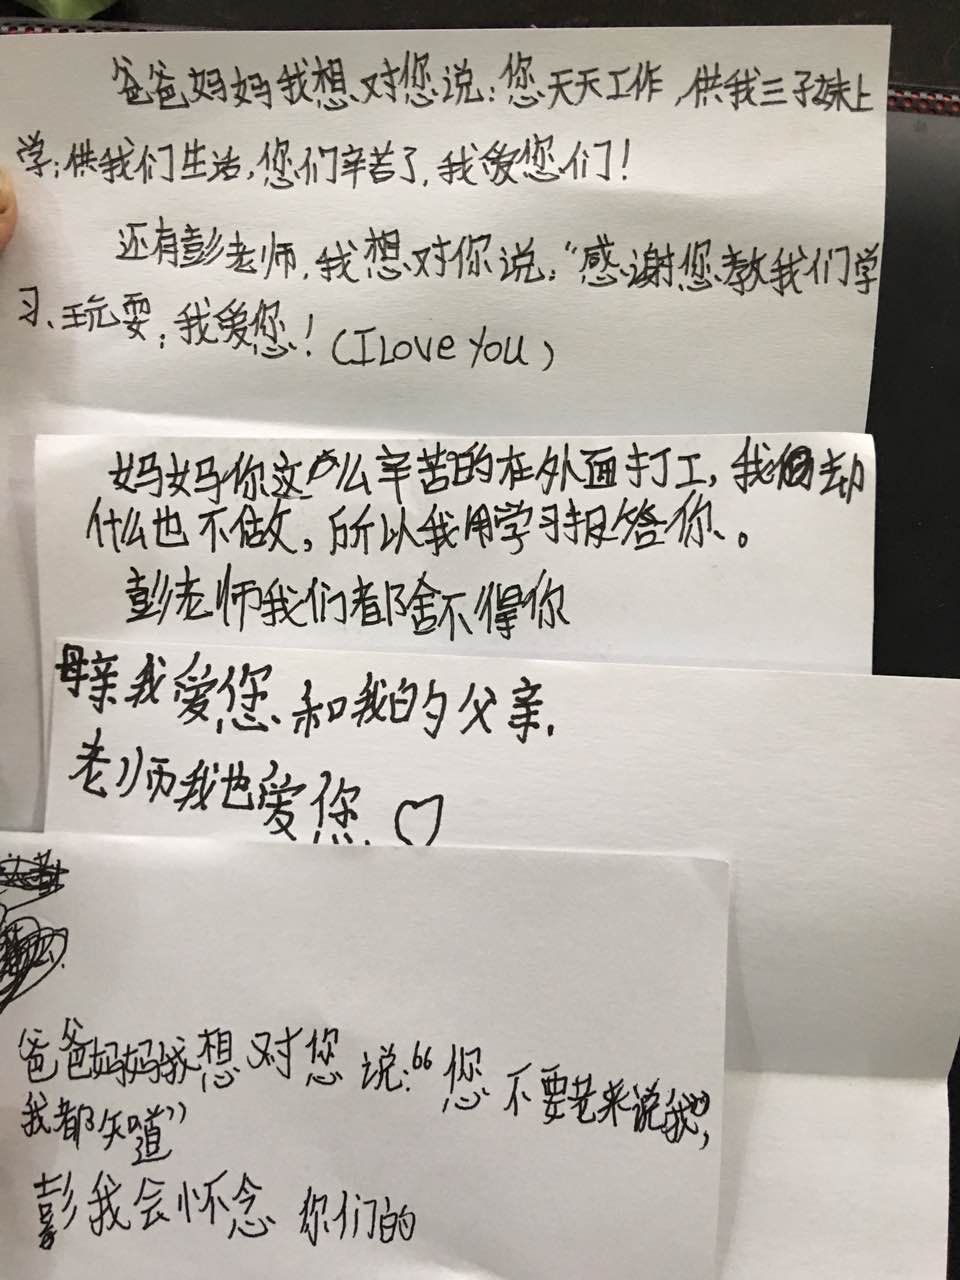 爸爸妈妈我想对您说：您天天工作，供我三子妹上
学；供我们生活，您们辛苦了，我爱您们！
还有彭老师，我想对你说：“感谢您教我们学
习、玩耍；我爱您！（I Love You）
妈妈你这么辛苦的在外面打工，我却
什么也不做，所以我用学习报答你、。
彭老师我们都舍不得你
母亲我爱您和我的父亲.
老师我也爱您.
爸爸妈妈我想对您说：“您不要老来说我”，
我都知道”
彭我会怀念你们的